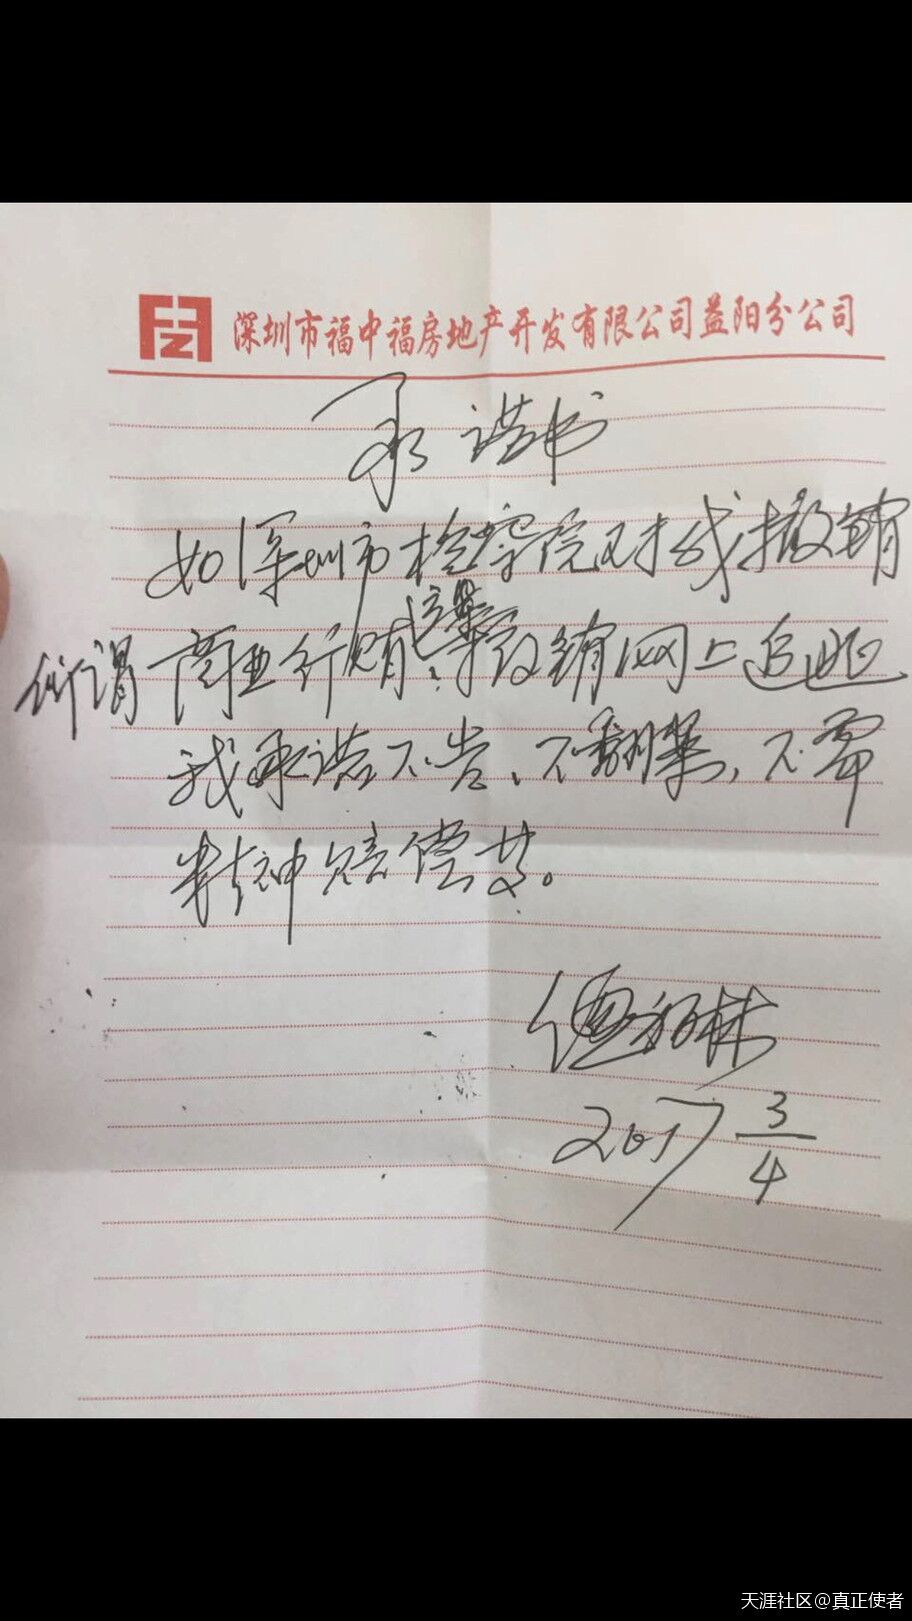 深圳市福中福房地产开发有限公司益阳分公司
承诺书
如深圳市检察院对我撤销
所谓商业行贿立案、撤销网上追逃
我承诺不告、不翻案,不需
精神赔偿费。
2017 3/4
天涯社区@真正使者